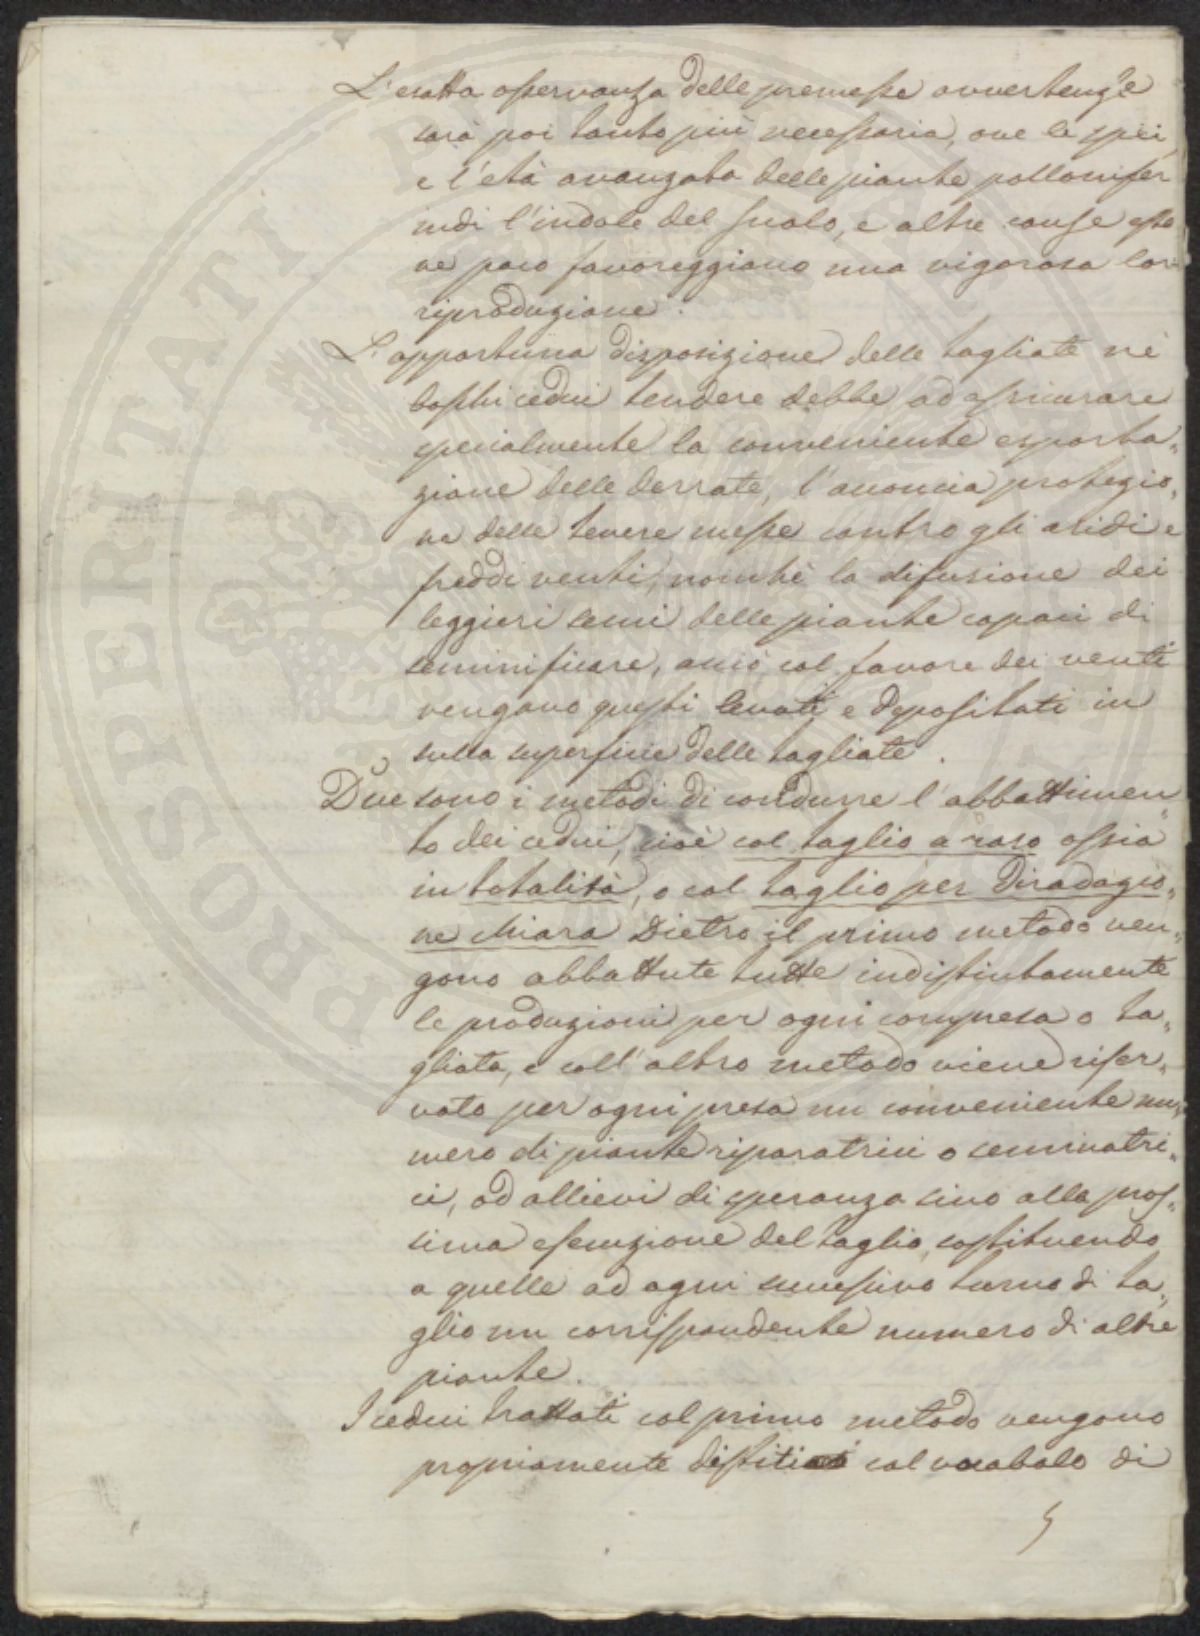 L'esatta osservanza delle premesse avvertenze
sarà poi tanto più necessaria, ove le speci
e l'età avanzata delle piante pollonifer
indi l'indole del suolo, e altre cause ester
ne poco favoreggiano una vigorosa lor
riproduzione.
L'opportuna disposizione delle tagliate nè
boschi cedui tendere debbe ad assicurare
specialmente la conveniente esporta„
zione delle derrate, l'acconcia protezio„
ne delle tenere messe contro gli aridi e
freddi venti, nonchè la difusione dei
leggieri semi delle piante capaci di
seminificare, acciò col favore dei venti
vengano questi levati e depositati in
sulla superficie delle tagliate.
Due sono i metodi di condurre l'abbattimen„
to dei cedui, cioè col taglio a raso ossia
in totalità, o col taglio per Diradazio„
ne chiara Dietro il primo metodo ven„
gono abbattute tutte indistintamente
le produzioni per ogni compresa o ta„
gliata, e coll'altro metodo viene riser„
vato per ogni presa un conveniente nu„
mero di piante riparatrici o seminatri„
ci, ad allievi di speranza sino alla pros„
sima esecuzione del taglio, sostituendo
a quelle ad ogni successivo turno di ta„
glio un corrispondente numero di altre
piante.
I cedui trattati col primo metodo vengono
propriamente distinti col vocabolo di
PROSPERITATI